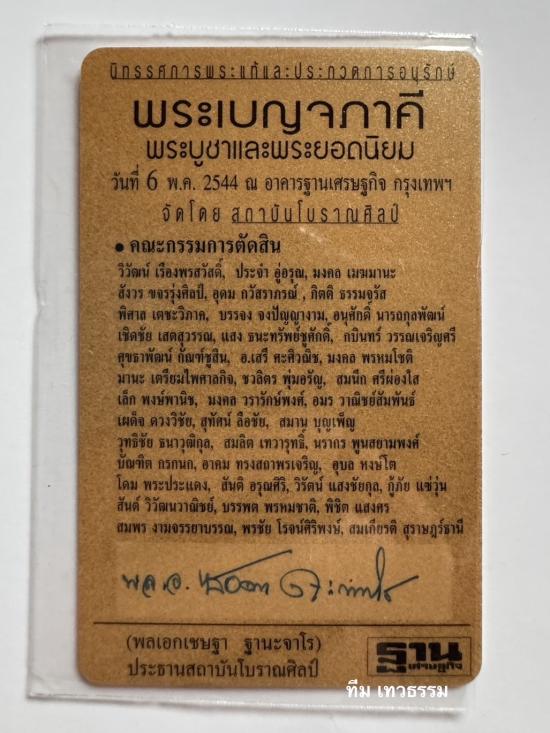 นิทรรศการพระแท้และประกวดการอนุรักษ์
พระเบญจภาคี
พระบูชาและพระยอดนิยม
วันที่ 6 พ.ค. 2544 ณ อาคารฐานเศรษฐกิจ กรุงเทพฯ
จัดโดย สถาบันโบราณศิลป์
• คณะกรรมการตัดสิน
วิวัฒน์ เรืองพรสวัสดิ์, ประจำ อู่อรุณ, มงคล เมฆมานะ
สังวร ขจรรุ่งศิลป์, อุดม กวัสราภรณ์ , กิตติ ธรรมจรัส
พิศาล เตชะวิภาค, บรรจง จงปัญญางาม, อนุศักดิ์ นารถกุลพัฒน์
เชิดชัย เสตสุวรรณ, แสง ธนะทรัพย์ชูศักดิ์, กบินทร์ วรรณเจริญศรี
ศุขธาพัฒน์ กัณฑ์ชูสิน, อ.เสรี คะศิวณิช, มงคล พรหมโชติ
มานะ เตรียมไพศาลกิจ, ชวลิตร พุ่มอรัญ, สมนึก ศรีผ่องใส
เล็ก พงษ์พานิช, มงคล วรารักษ์พงศ์, อมร วาณิชย์สัมพันธ์
เผด็จ ดวงวิชัย, สุทัศน์ ลือชัย, สมาน บุญเพ็ญ
วุทธิชัย ธนาวุฒิกุล, สมลิต เทวารุทธิ์, นรากร พูนสยามพงศ์
บัณฑิต กรกนก, อาคม ทรงสถาพรเจริญ, อุบล หงษ์โต
โดม พระประแดง, สันติ อรุณศิริ, วิรัตน์ แสงชัยกุล, กู้ภัย แซ่วุ่น
สันต์ วิวัฒนวาณิชย์, บรรพต พรหมชาติ, พิชิต แสงศร
สมพร งามจรรยาบรรณ, พรชัย โรจน์ศิริพงษ์, สมเกียรติ สุราษฎร์ธานี
พล.อ.
(พลเอกเชษฐา ฐานะจาโร)
ประธานสถาบันโบราณศิลป์
ฐาน
เศรษฐกิจ
ทีม เทวธรรม